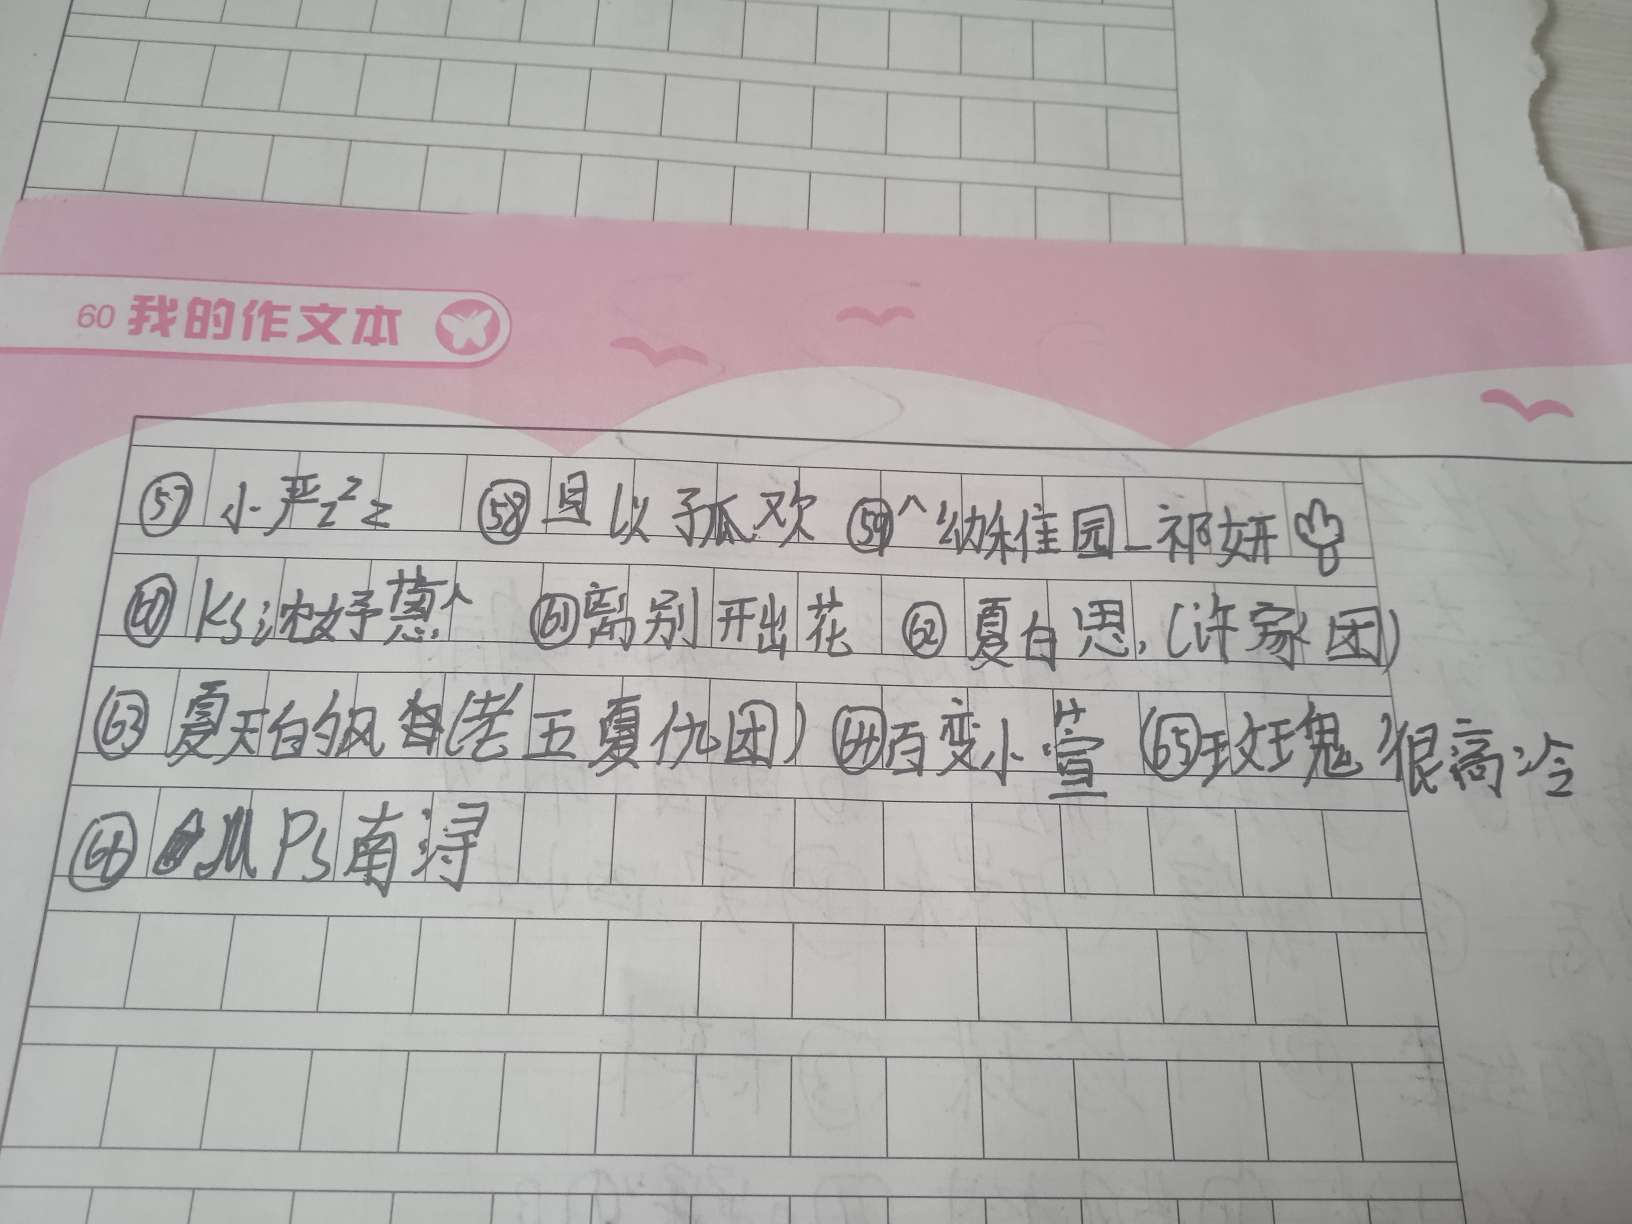 60 我的作文本
㊼ 小严zzz ㊽ 且以予孤欢 ㊾ ^幼稚园_祁妍
⑥⓪ Ks沈妤蒽^ ⑥① 离别开出花 ⑥② 夏白思.(许家团)
⑥③ 夏天白的风 (老五夏仇团) ⑥④ 百变小萱 ⑥⑤ 玫瑰 很高冷
⑥⑥ MPs南浔